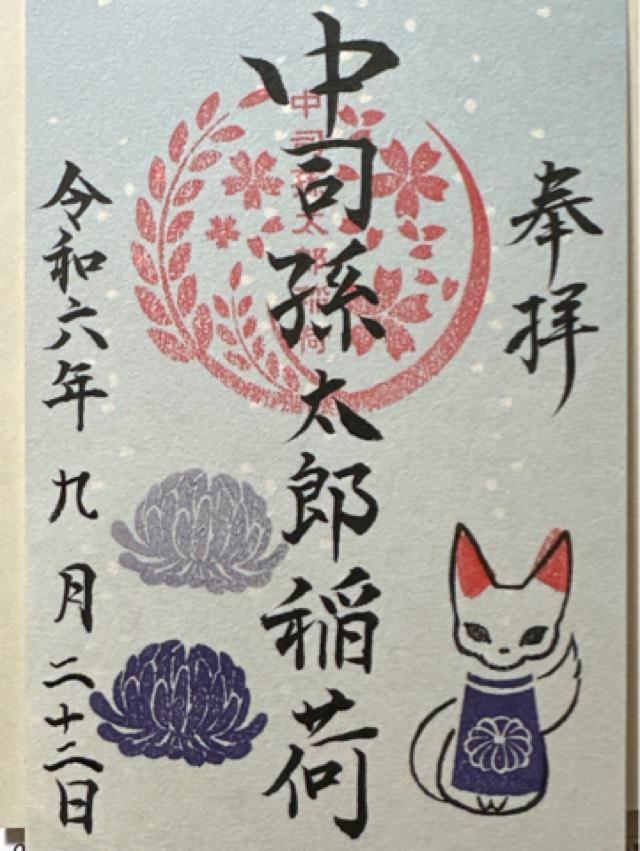 奉拝
中司孫太郎稲荷
中司孫太郎稲荷
令和六年九月二十二日